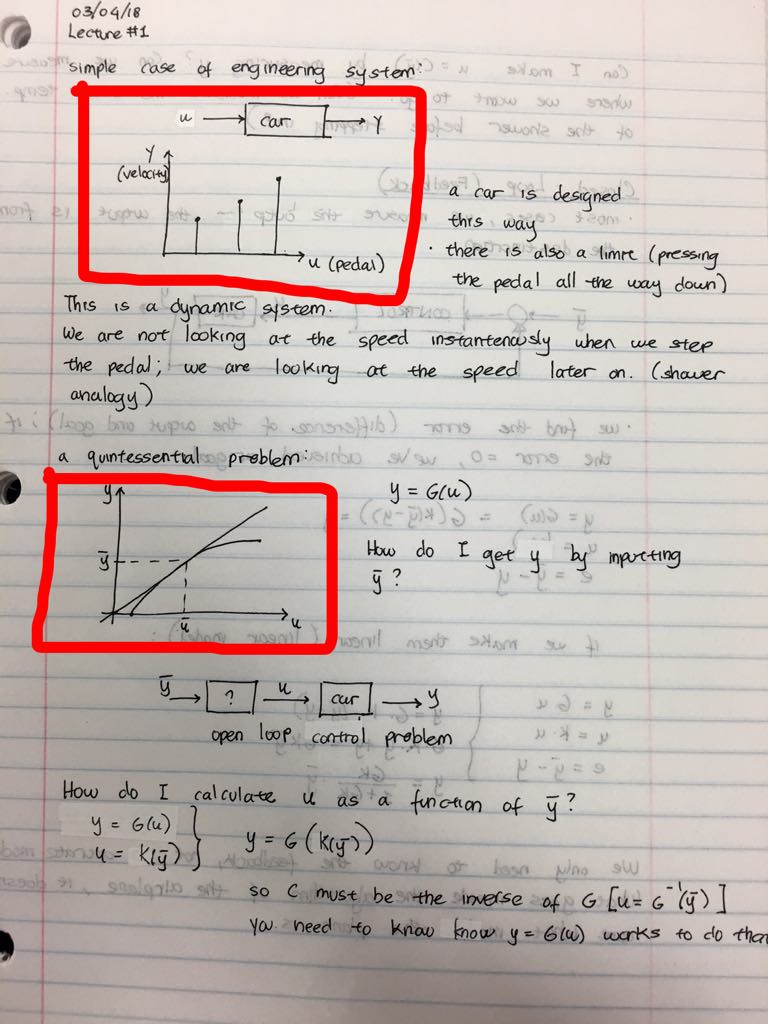 03/04/18
Lecture #1
simple case of engineering system:
u → car → Y
Y
(velocity)
u (pedal)
a car is designed
this way
· there is also a limit (pressing
the pedal all the way down)
This is a dynamic system.
We are not looking at the speed instantenously when we step
the pedal; we are looking at the speed later on. (shower
analogy)
a quintessential problem:
y
ȳ
ū
u
y = G(u)
How do I get y by inputting
ȳ?
ȳ → ? → u → car → y
open loop control problem
How do I calculate u as a function of ȳ?
y = G(u)
u = K(ȳ)
y = G(K(ȳ))
so C must be the inverse of G [u = G⁻¹(ȳ)]
You need to know know y = G(u) works to do that